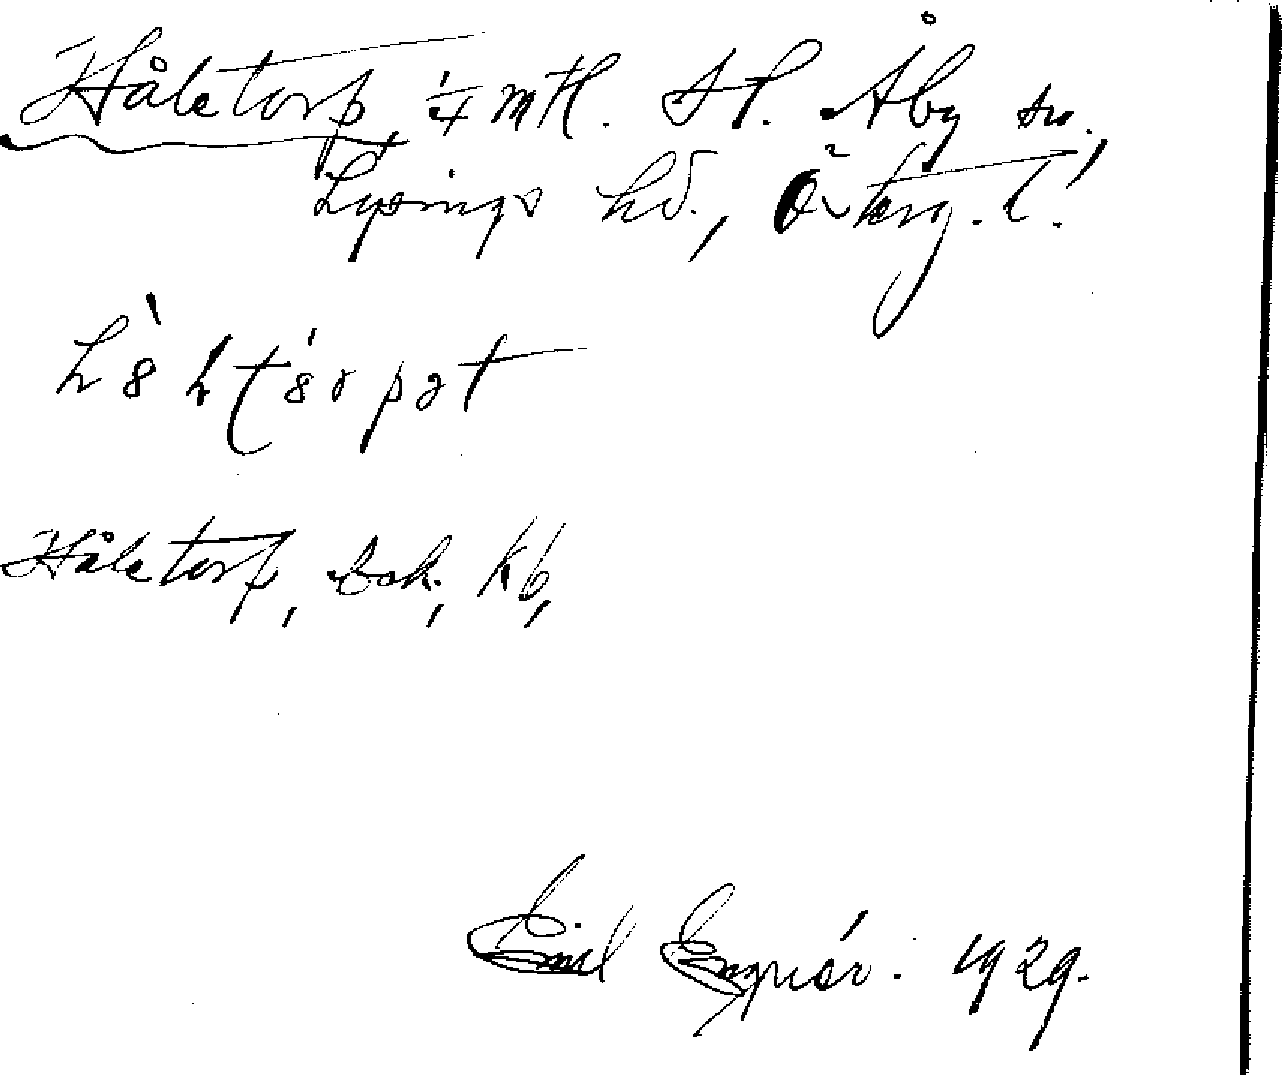 Håletorp, 1/4 mtl. St. Åby sn.,
Lysings hd., Österg. l.
Håletorp, Jok, Kb,
Emil Engnér. 1929.